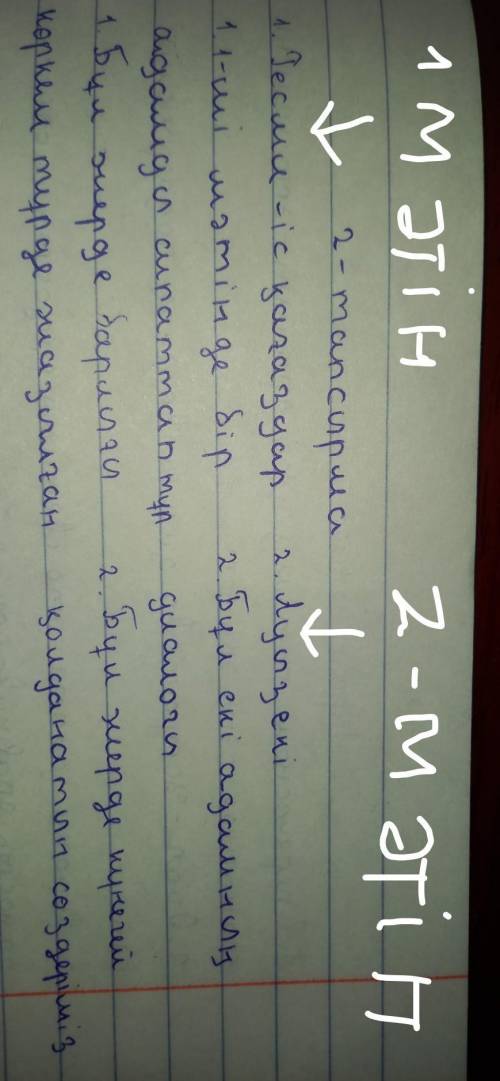 1 МӘТІН 2-МӘТІН
2-тапсырма
1. Ресми-іс қағаздар 2. Ауызекі
1. 1-ші мәтінде бір 2. Бұл екі адамның
адамды сипаттап тұр диалогы
1. Бұл жерде барлығы 2. Бұл жерде күнегей
көркем түрде жазылған қолданатын сөздеріміз